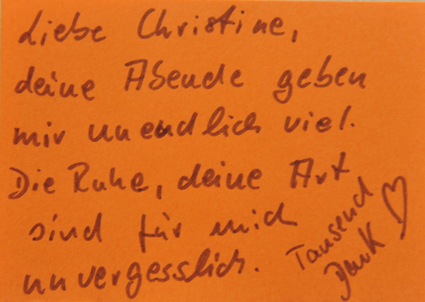 Liebe Christine,
deine Abende geben
mir unendlich viel.
Die Ruhe, deine Art
sind für mich
unvergesslich.
Tausend
Dank ♡